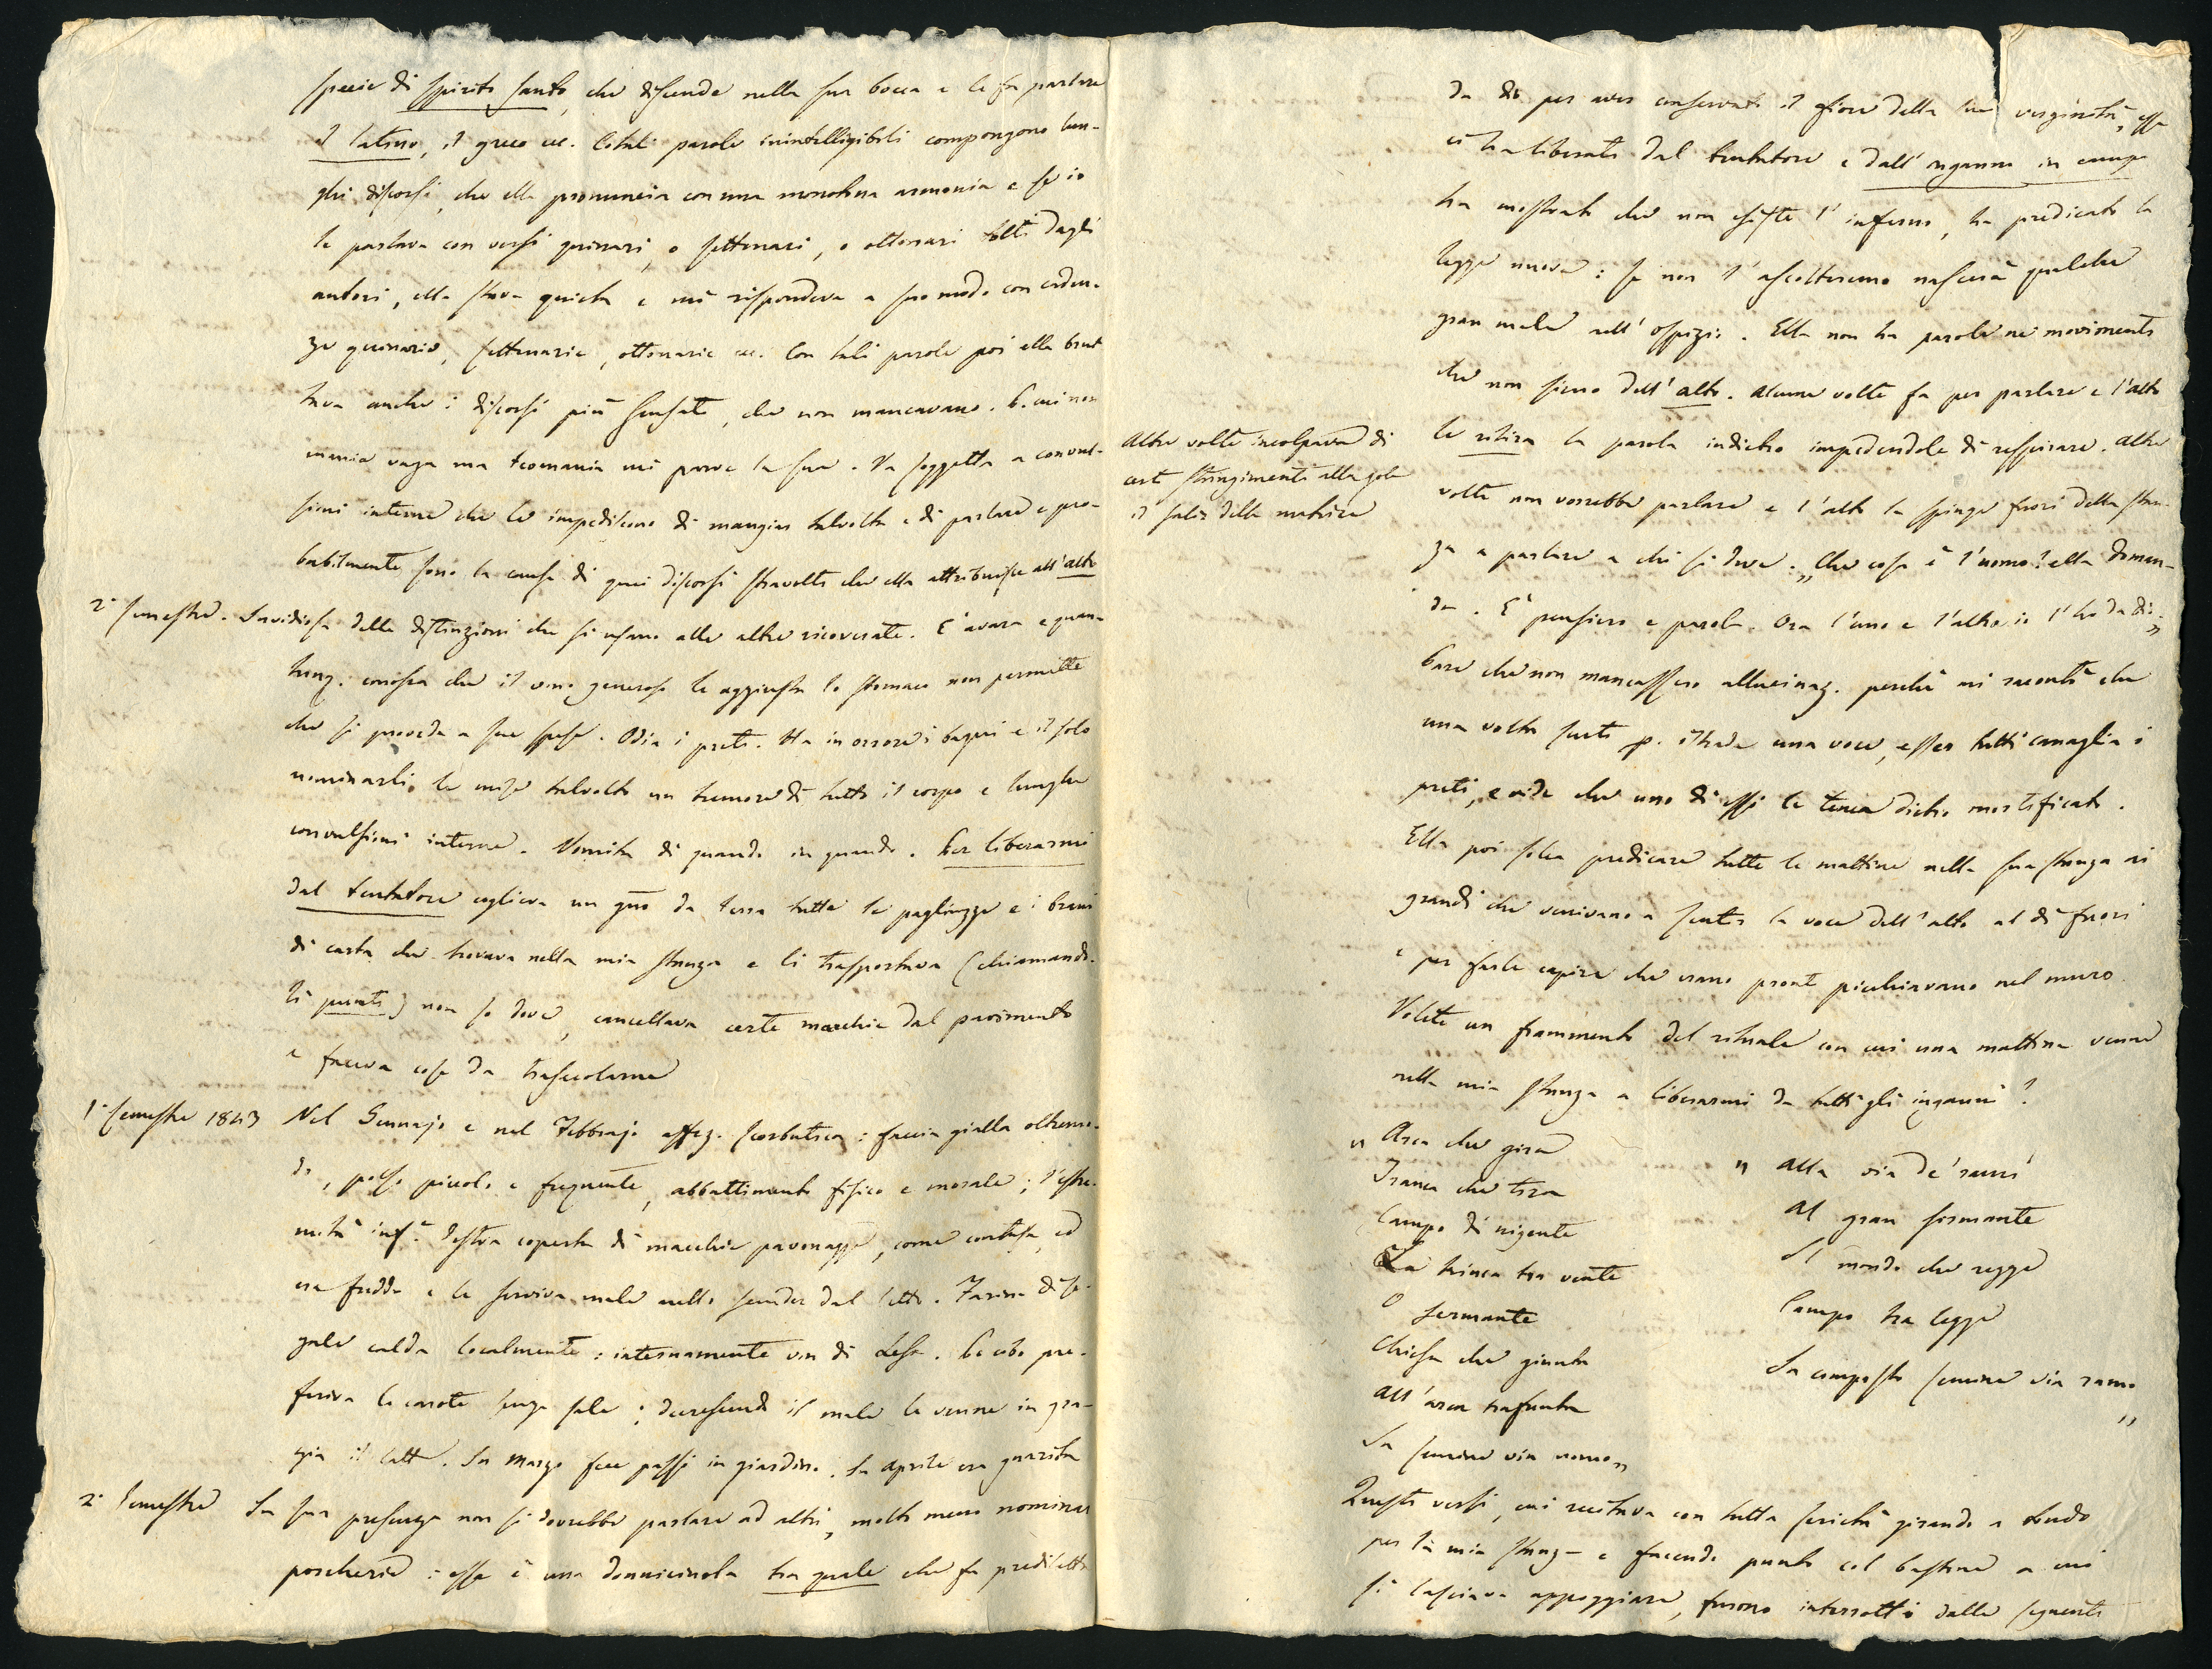 specie di spirito santo, che discende nella sua bocca e le fa parlare
il latino, il greco ec. Cotali parole inintelligibili compongono lun-
ghi discorsi, che ella pronuncia con una monotona armonia e se io
le parlava con versi quinari, o settenari, o ottonari tolti dagli
autori, ella stava quieta e mi rispondeva a suo modo con caden-
ze quinarie, settenarie, ottonarie ec. Con tali parole poi ella brut
tava anche i discorsi più sensati, che non mancavano.
mania vaga ma teomania mi parve la sua. Va soggetta a convul-
sioni interne che le impediscono di mangiar talvolta e di parlare e pro-
babilmente sono la causa di quei discorsi stravolti che ella attribuisce all'alto
2° semestre. Invidiosa delle distinzioni che si usano alle altre ricoverate. È avara e quan-
tunq. conosca che il vino generoso le aggiusta lo stomaco non permette
che si provveda a sue spese. Odia i preti. Ha in orrore i bagni e il solo
nominarli, le mise talvolta un tremore di tutto il corpo e lunghe
convulsioni interne. Vomita di quando in quando. Per liberarmi
dal tentatore coglieva un gno da terra tutte le pagliuzze e i brani
di carta che trovava nella mia stanza e li trasportava (chiamando-
li punti) non so dove, cancellava certe macchie dal pavimento
e faceva cose da trasecolarne
1° semestre 1843 Nel Gennajo e nel Febbrajo affez. scorbutica: faccia gialla oltremo-
do, polso piccolo e frequente, abbattimento fisico e morale; l'estre-
mità inf.e destra coperta di macchie pavonazze, come contusa, ed
era fredda e le serviva male nello scender dal letto. Farina di se-
gale calda localmente: internamente vin di Lesa. Per cibo pre-
feriva le carote senza sale; decrescendo il male le venne in gra-
zia il latte. In Marzo fece passi in giardino. In Aprile era guarita
2° Semestre In sua presenza non si dovrebbe parlare ad altri, molto meno nominar
porcherie: essa è una donnicciuola tra quale che fu prediletta
da Dio per aver conservato il fiore della sua verginità, essa
ci ha liberati dal tentatore e dall'inganno in campo
ha mostrato che non esiste l'inferno, ha predicato la
legge nuova: se non l'ascolteremo nascerà qualche
gran male nell'Ospizio. Ella non ha parole nè movimenti
che non sieno dell'alto. Alcune volte fa per parlare e l'alto
le ritira la parola indietro impedendole di respirare. Altre
Altre volte incolpava di
certi stringimenti alla gola
il salir della matrice
volte non vorrebbe parlare e l'alto la spinge fuori della stan-
za a parlare a chi si deve. „Che cosa è l'uomo? ella doman-
da. È pensiero e parola. Ora l'uno e l'altra io l'ho da Dio„
Pare che non mancassero allucinaz. perchè mi raccontò che
una volta sentì p. istrada una voce, esser tutti canaglia i
preti, e vide che uno di essi le tenea dietro mortificato.
Ella poi solea predicare tutte le mattine nella sua stanza ai
grandi che venivano a sentir la voce dell'alto al di fuori
e per farle capire che erano pronti picchiavano nel muro.
Volete un frammento del rituale con cui una mattina venne
nella mia stanza a liberarmi da tutti gli inganni?
„ Arca che gira
Franca che tira
Campo di nigente
La trinca tra vente
O fermante
Chiesa che giunta
All'arca trafunta
In semine via nomo„
„ Alla via de' rami
Al gran formante
Il mondo che regge
Campo tra legge
In composto semine via ramo
„
Questi versi, cui recitava con tutta serietà girando a tondo
per la mia stanza e facendo punto col bastone a cui
si lasciava appoggiare, furono interrotti dalle seguenti